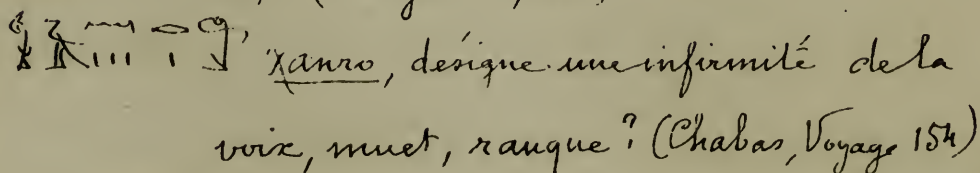 χanro, désigne une infirmité de la
voix, muet, rauque? (Chabas, Voyage 154)